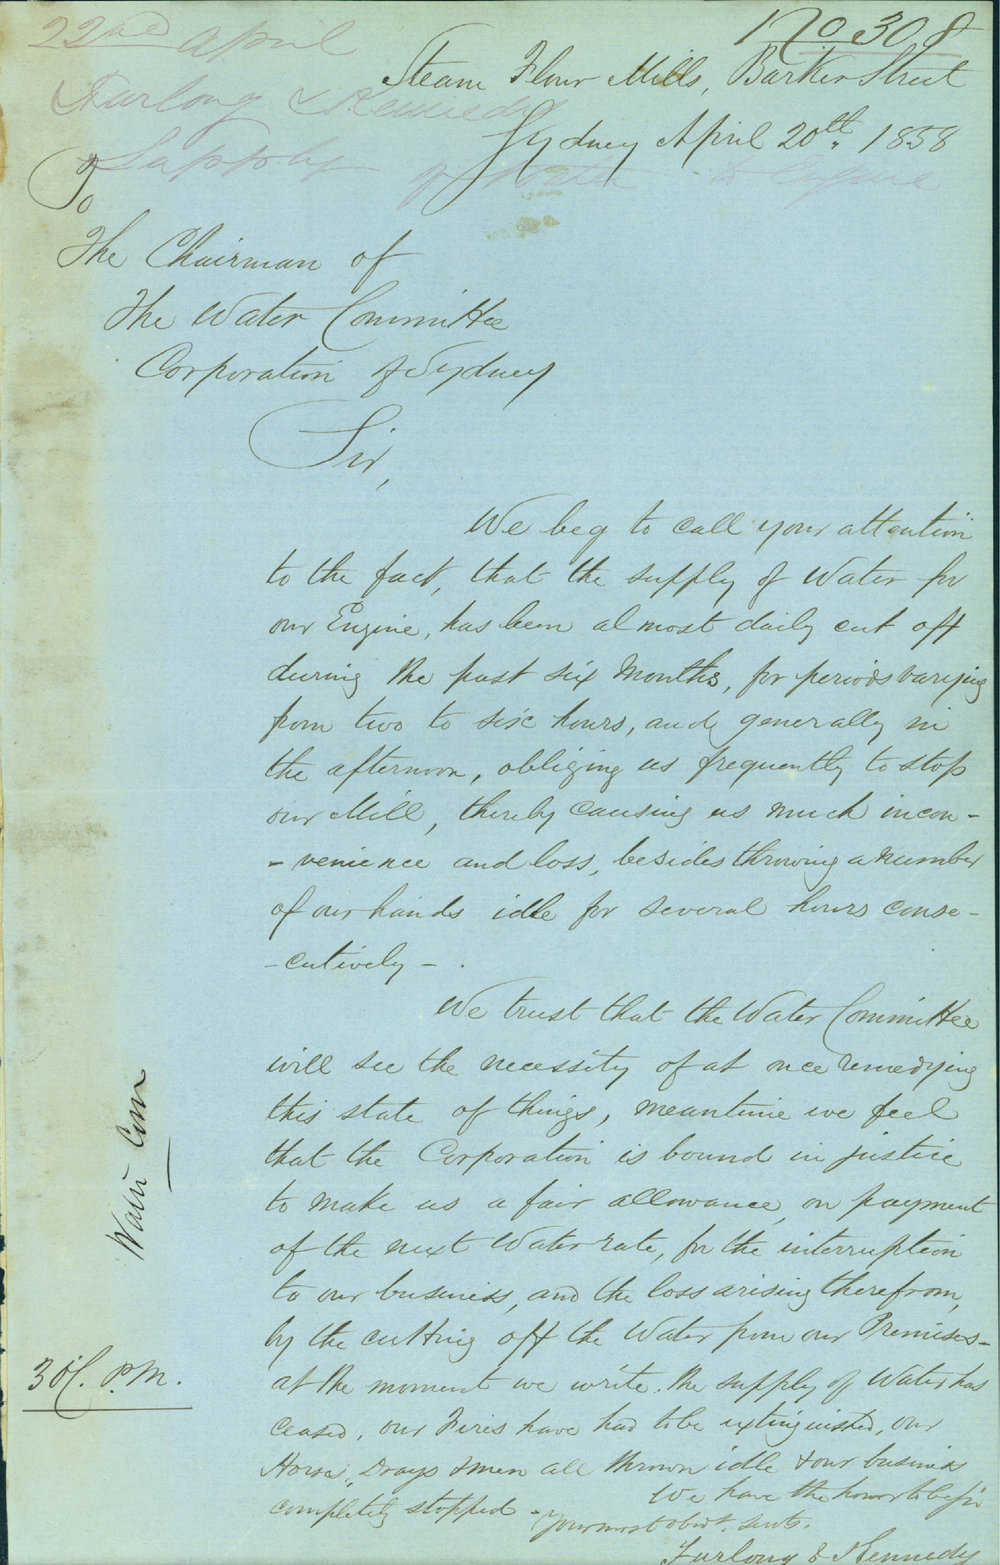 No 308
22nd April
Furlong & Kennedy
Supply of Water to Engine
Steam Flour Mills, Barker Street
Sydney April 20th. 1858
To
The Chairman of
The Water Committee
Corporation of Sydney
Sir,
We beg to call your attention
to the fact, that the supply of Water for
our Engine, has been almost daily cut off
during the past six Months, for periods varying
from two to six hours, and generally in
the afternoon, obliging us frequently to stop
our Mill, thereby causing us much incon-
-venience and loss, besides throwing a number
of our hands idle for several hours conse-
-cutively -
We trust that the Water Committee
will see the necessity of at once remedying
this state of things, meantime we feel
that the Corporation is bound in justice
to make us a fair allowance, on payment
of the next Water rate, for the interruption
to our business, and the loss arising therefrom,
by the cutting off the Water from our Premises-
at the moment we write. the supply of Water has
ceased, our Fires have had to be extinguished, our
Horses, Drays & men all thrown idle & our business
completely stopped -
We have the honor to be Sir
Your most obdt. Servts.
Furlong & Kennedy
Water Com
3 oC. P.M.